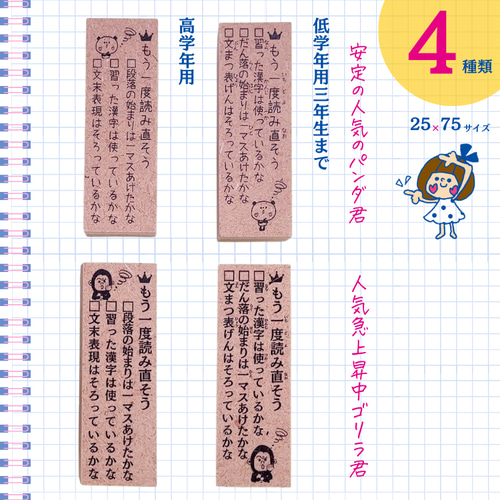 4
種類
25×75サイズ
安定の人気のパンダ君
低学年用三年生まで
もう一度読み直そう
□習った漢字は使っているかな
□だん落の始まりは一マスあけたかな
□文まつ表げんはそろっているかな
高学年用
もう一度読み直そう
□段落の始まりは一マスあけたかな
□習った漢字は使っているかな
□文末表現はそろっているかな
人気急上昇中ゴリラ君
もう一度読み直そう
□習った漢字は使っているかな
□だん落の始まりは一マスあけたかな
□文まつ表げんはそろっているかな
もう一度読み直そう
□段落の始まりは一マスあけたかな
□習った漢字は使っているかな
□文末表現はそろっているかな